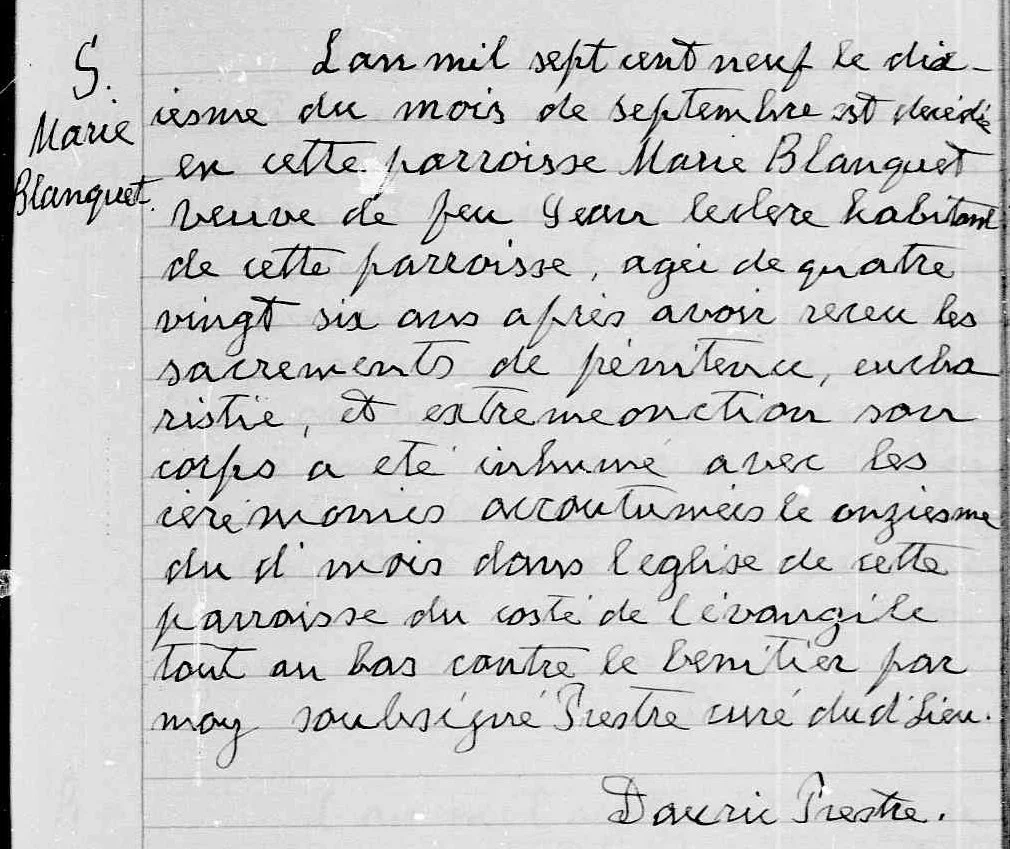 S.
Marie
Blanquet.
Lan mil sept cent neuf le dix-
iesme du mois de septembre est decédée
en cette parroisse Marie Blanquet
veuve de feu Jean leclerc habitant
de cette parroisse, agée de quatre
vingt six ans après avoir receu les
sacrements de pénitence, eucha
ristie, et extremeonction son
corps a eté inhumé avec les
cérémonies accoutumées le onziesme
du d' mois dans leglise de cette
parroisse du costé de l'évangile
tout au bas contre le benitier par
moy soubsigné Prestre curé dud' Lieu.
Prestre.